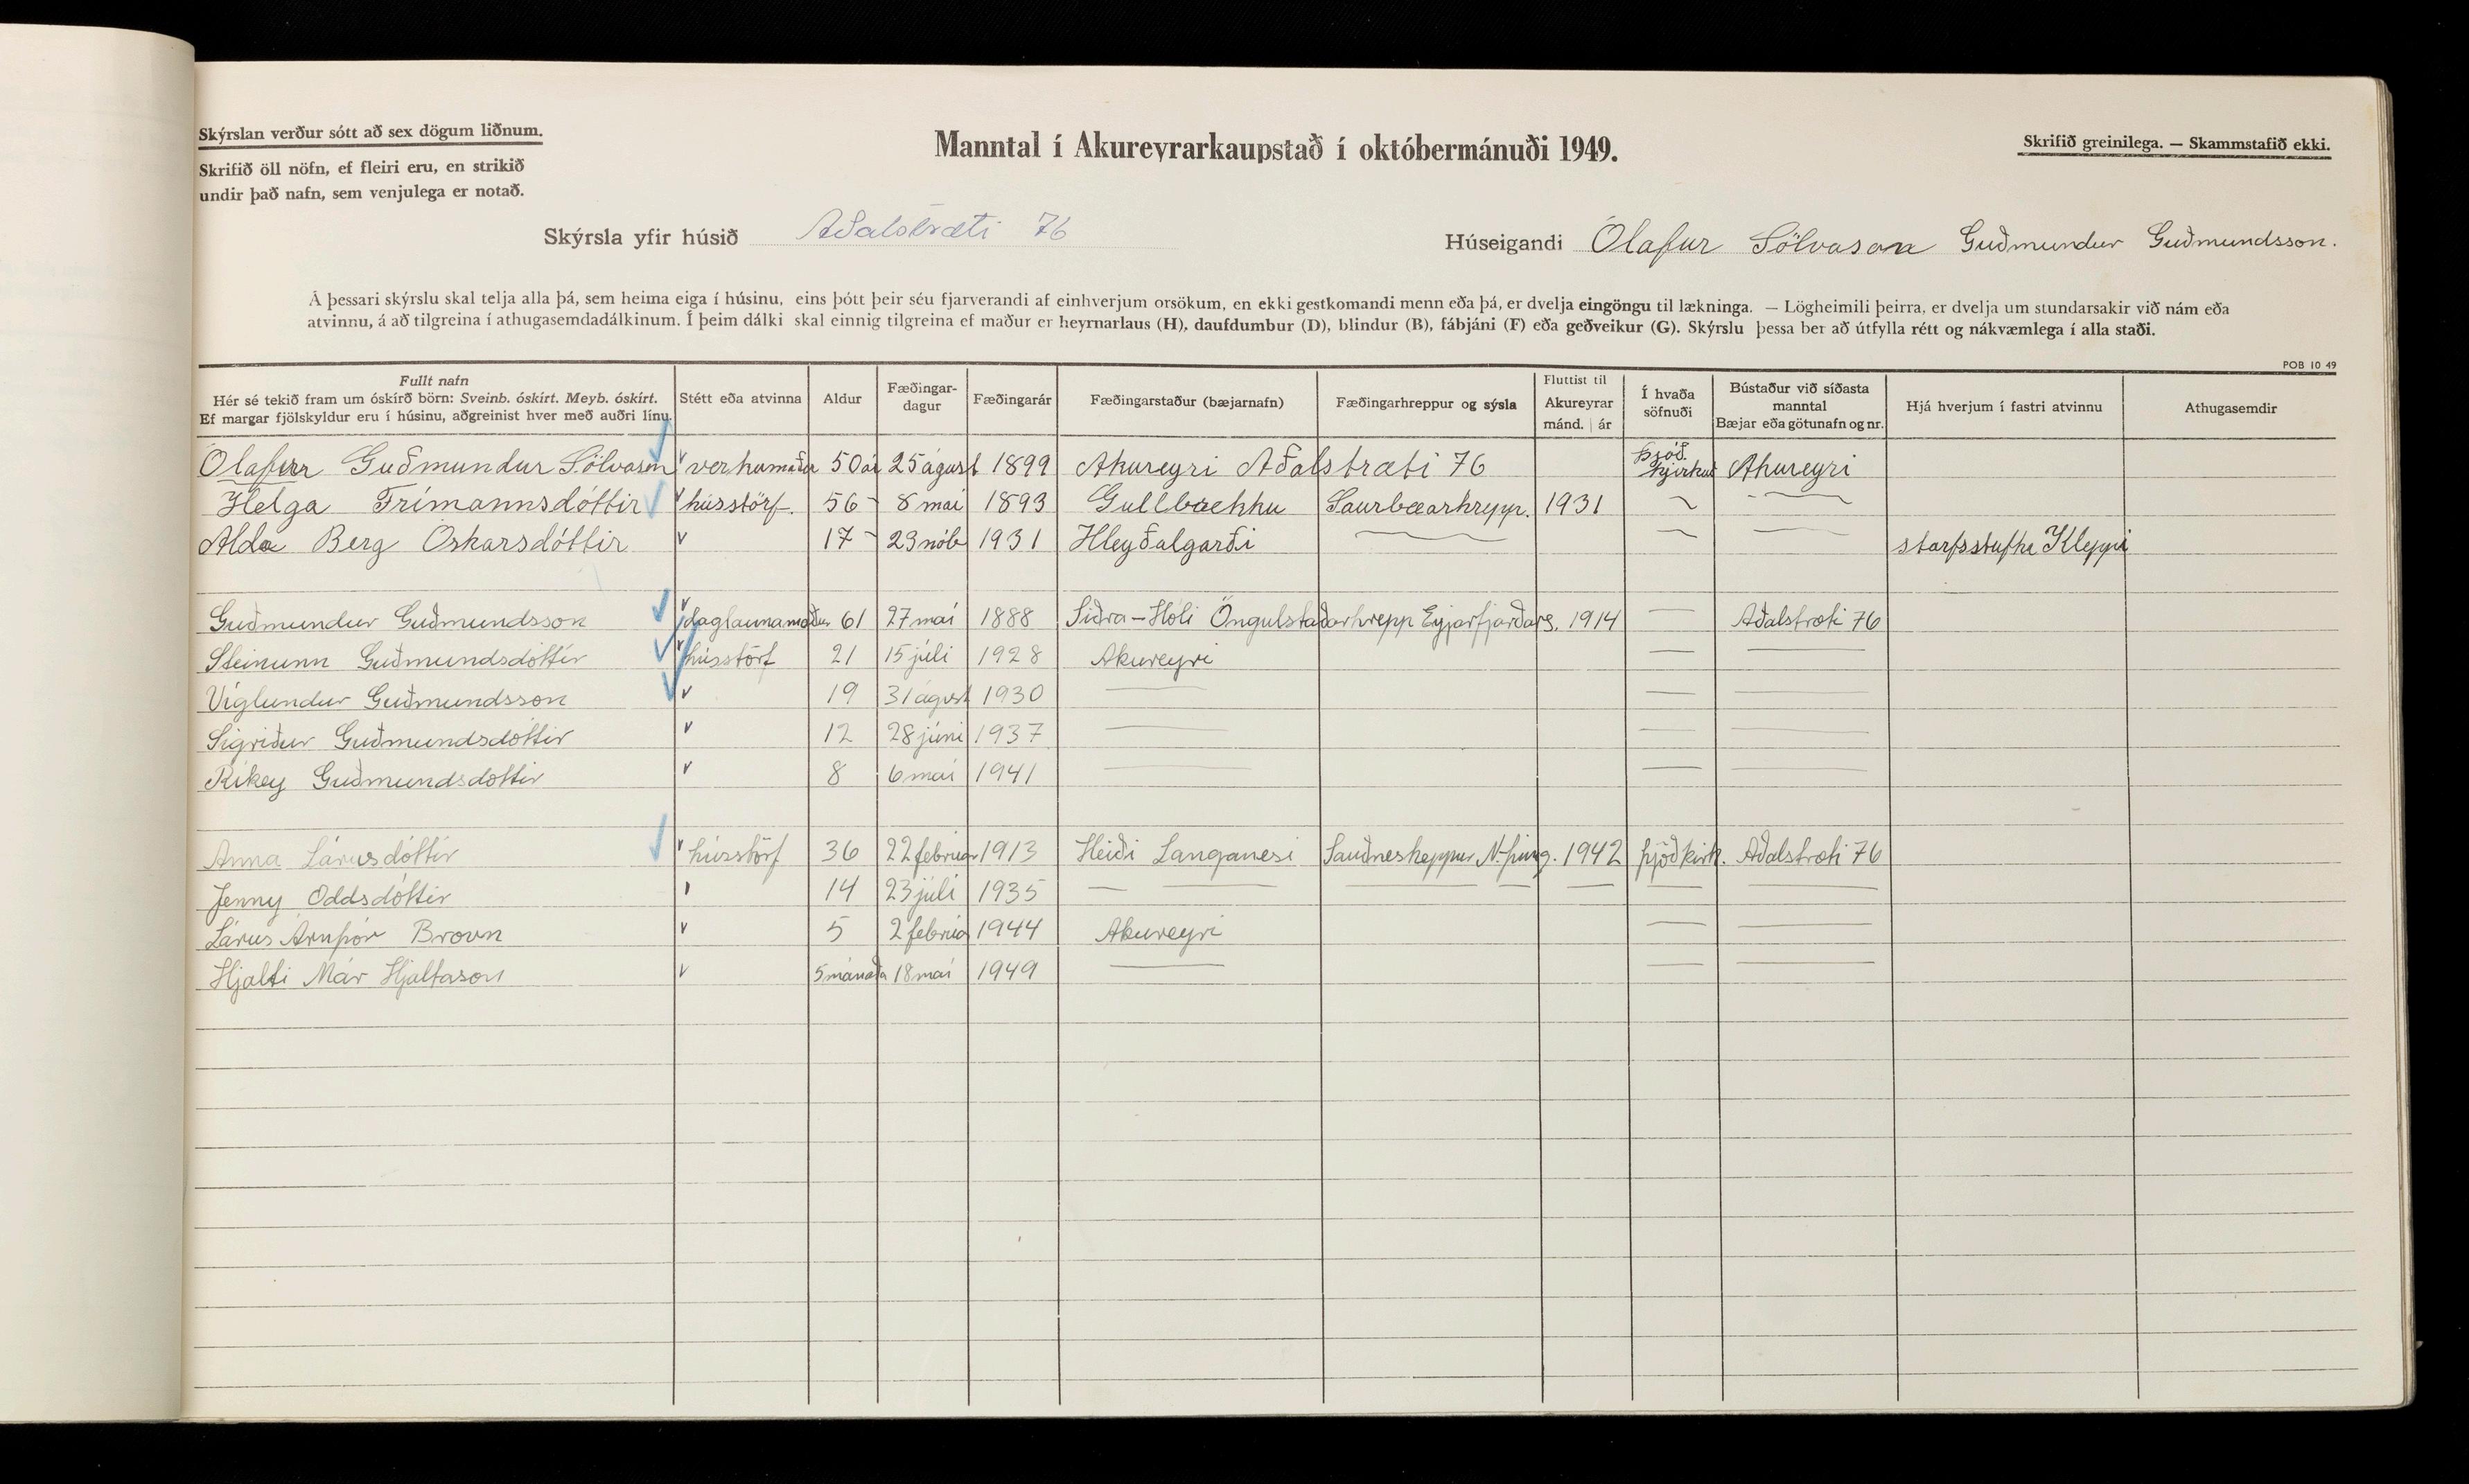 Skýrslan verður sótt að sex dögum liðnum.
Skrifið öll nöfn, ef fleiri eru, en strikið
undir það nafn, sem venjulega er notað.
Manntal í Akureyrarkaupstað í októbermánuði 1949.
Skrifið greinilega. — Skammstafið ekki.
Skýrsla yfir húsið Aðalstræti 76
Húseigandi Ólafur Sölvason Guðmundur Guðmundsson.
Á þessari skýrslu skal telja alla þá, sem heima eiga í húsinu, eins þótt þeir séu fjarverandi af einhverjum orsökum, en ekki gestkomandi menn eða þá, er dvelja eingöngu til lækninga. — Lögheimili þeirra, er dvelja um stundarsakir við nám eða
atvinnu, á að tilgreina í athugasemdadálkinum. Í þeim dálki skal einnig tilgreina ef maður er heyrnarlaus (H), daufdumbur (D), blindur (B), fábjáni (F) eða geðveikur (G). Skýrslu þessa ber að útfylla rétt og nákvæmlega í alla staði.
POB 10 49
Fullt nafn
Hér sé tekið fram um óskírð börn: Sveinb. óskírt. Meyb. óskírt.
Ef margar fjölskyldur eru í húsinu, aðgreinist hver með auðri línu.
Stétt eða atvinna
Aldur
Fæðingar-
dagur
Fæðingarár
Fæðingarstaður (bæjarnafn)
Fæðingarhreppur og sýsla
Fluttist til
Akureyrar
mánd. | ár
Í hvaða
söfnuði
Bústaður við síðasta
manntal
Bæjar eða götunafn og nr.
Hjá hverjum í fastri atvinnu
Athugasemdir
Ólafur Guðmundur Sölvason verkamaður 50 ár 25 ágúst 1899 Akureyri Aðalstræti 76 Þjóð kirkju Akureyri
Helga Frímannsdóttir hússtörf. 56 - 8 maí 1893 Gullbrekku Saurbæarhrepp. 1931 ~ - —
Alda Berg Óskarsdóttir 17 - 23 nób 1931 Hleyðalgarði — ~ — starfsstúlka Kleppi
Guðmundur Guðmundsson daglaunamaður 61 27 maí 1888 Siðra-Hóli Öngulstaðarhrepp Eyjarfjarðars. 1914 — Aðalstræti 76
Steinunn Guðmundsdóttir hússtörf 21 15 júli 1928 Akureyri — —
Víglundur Guðmundsson 19 31 ágúst 1930 — — —
Sigriður Guðmundsdóttir 12 28 júni 1937 — — —
Ríkey Guðmundsdóttir 8 6 maí 1941 — — —
Anna Lárusdóttir hússtörf 36 22 febrúar 1913 Heiði Langanesi Sauðneshreppur N-þing. 1942 þjóðkirk. Aðalstræti 76
Jenny Oddsdóttir 14 23 júlí 1935 — — — — — — —
Lárus Arnþór Brown 5 2 febrúar 1944 Akureyri — —
Hjalti Már Hjaltason 5 mánaða 18 maí 1949 — — —